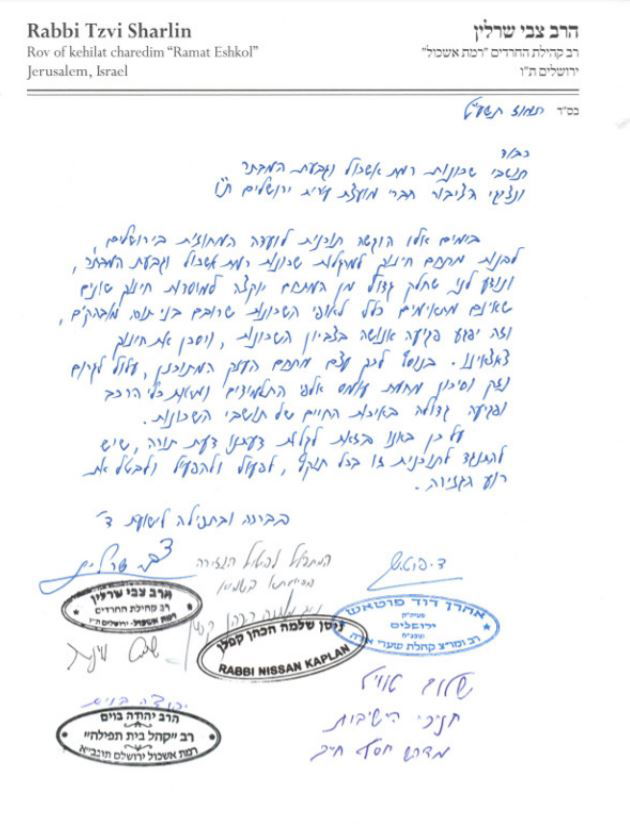 Rabbi Tzvi Sharlin
Rov of kehilat charedim “Ramat Eshkol”
Jerusalem, Israel
הרב צבי שרלין
רב קהילת החרדים "רמת אשכול"
ירושלים ת"ו
בס"ד תמוז תשע"ט
כבוד
תושבי שכונות רמת אשכול וגבעת המבתר
ונציגי הציבור חברי מועצת עירית ירושלים ת"ו
בימים אלו הוגשה תוכנית לועדה המחוזית בירושלים,
לבנות מתחם חינוך למרגלות שכונות רמת אשכול וגבעת המבתר,
ונודע לנו שחלק גדול מן המתחם יוקצה למוסדות חינוך שונים
שאינם מתאימים כלל לאופי השכונות שרובם בני תורה מובהקים,
וזה יפגע פגיעה אנושה בצביון השכונות, ויסכן את חינוך
צאצאינו. בנוסף לכך עצם מתחם הענק המתוכנן, עלול לגרום
נזק וסיכון מחמת עומס אלפי התלמידים ומאות כלי הרכב
ופגיעה גדולה באיכות החיים של תושבי השכונות.
על כן באנו בזאת לגלות דעתנו דעת תורה, שיש
להתנגד לתוכנית זו בכל תוקף, לפעול ולהפעיל ולבטל את
רוע הגזירה.
בברכה ובתפילה לישועת ד'
צבי שרלין
המתפלל לביטול הגזירה
בסייעתא דשמיא
ד. פוטש
הרב צבי שרלין
רב קהילת החרדים
רמת אשכול - ירושלים ת"ו
ניסן שלמה הכהן קפלן
RABBI NISSAN KAPLAN
אהרן דוד פוטאש
ירושלים
רב ומו"צ קהלת שערי
יהודה בוים
הרב יהודה בוים
רב "קהל בית תפילה"
רמת אשכול ירושלם תובב"א
חניכי הישיבות
מדרש